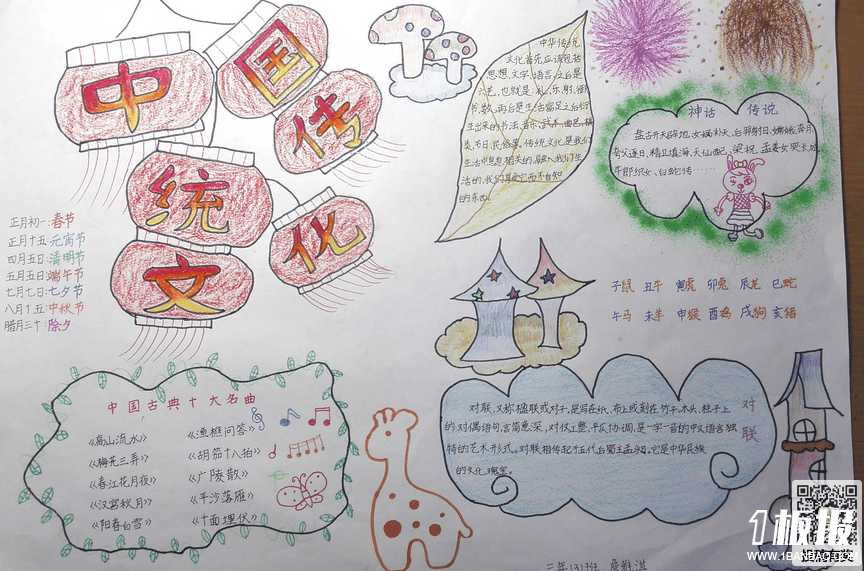 中
国
传
统
文
化
中华传统
文化首先应该包括
思想、文字、语言,之后是
六艺,也就是:礼、乐、射、御、
书、数,再后是生活富足之后衍
生出来的书法、音乐、武术、曲艺、棋
类、节日、民俗等。传统文化是我们
生活中息息相关的,融入我们生
活的,我们享受它而不自知
的东西。
神话 传说
盘古开天辟地、女娲补天、后羿射日、嫦娥奔月、
夸父逐日、精卫填海、天仙配、梁祝、孟姜女哭长城、
牛郎织女、白蛇传……
正月初一:春节
正月十五:元宵节
四月五日:清明节
五月五日:端午节
七月七日:七夕节
八月十五:中秋节
腊月三十:除夕
子鼠 丑牛 寅虎 卯兔 辰龙 巳蛇
午马 未羊 申猴 酉鸡 戌狗 亥猪
中国古典十大名曲
《高山流水》 《渔樵问答》
《梅花三弄》 《胡笳十八拍》
《春江花月夜》 《广陵散》
《汉宫秋月》 《平沙落雁》
《阳春白雪》 《十面埋伏》
对联
对联,又称楹联或对子,是写在纸、布上或刻在竹子、木头、柱子上
的对偶语句,言简意深,对仗工整,平仄协调,是一字一音的中文语言独
特的艺术形式。对联相传起于五代后蜀主孟昶。它是中华民族
的文化瑰宝。
三年(3)班
1板报
WWW.1BANBAO.COM